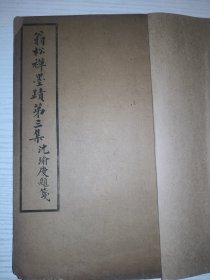 翁松禅墨蹟第三集沈瑜慶題箋